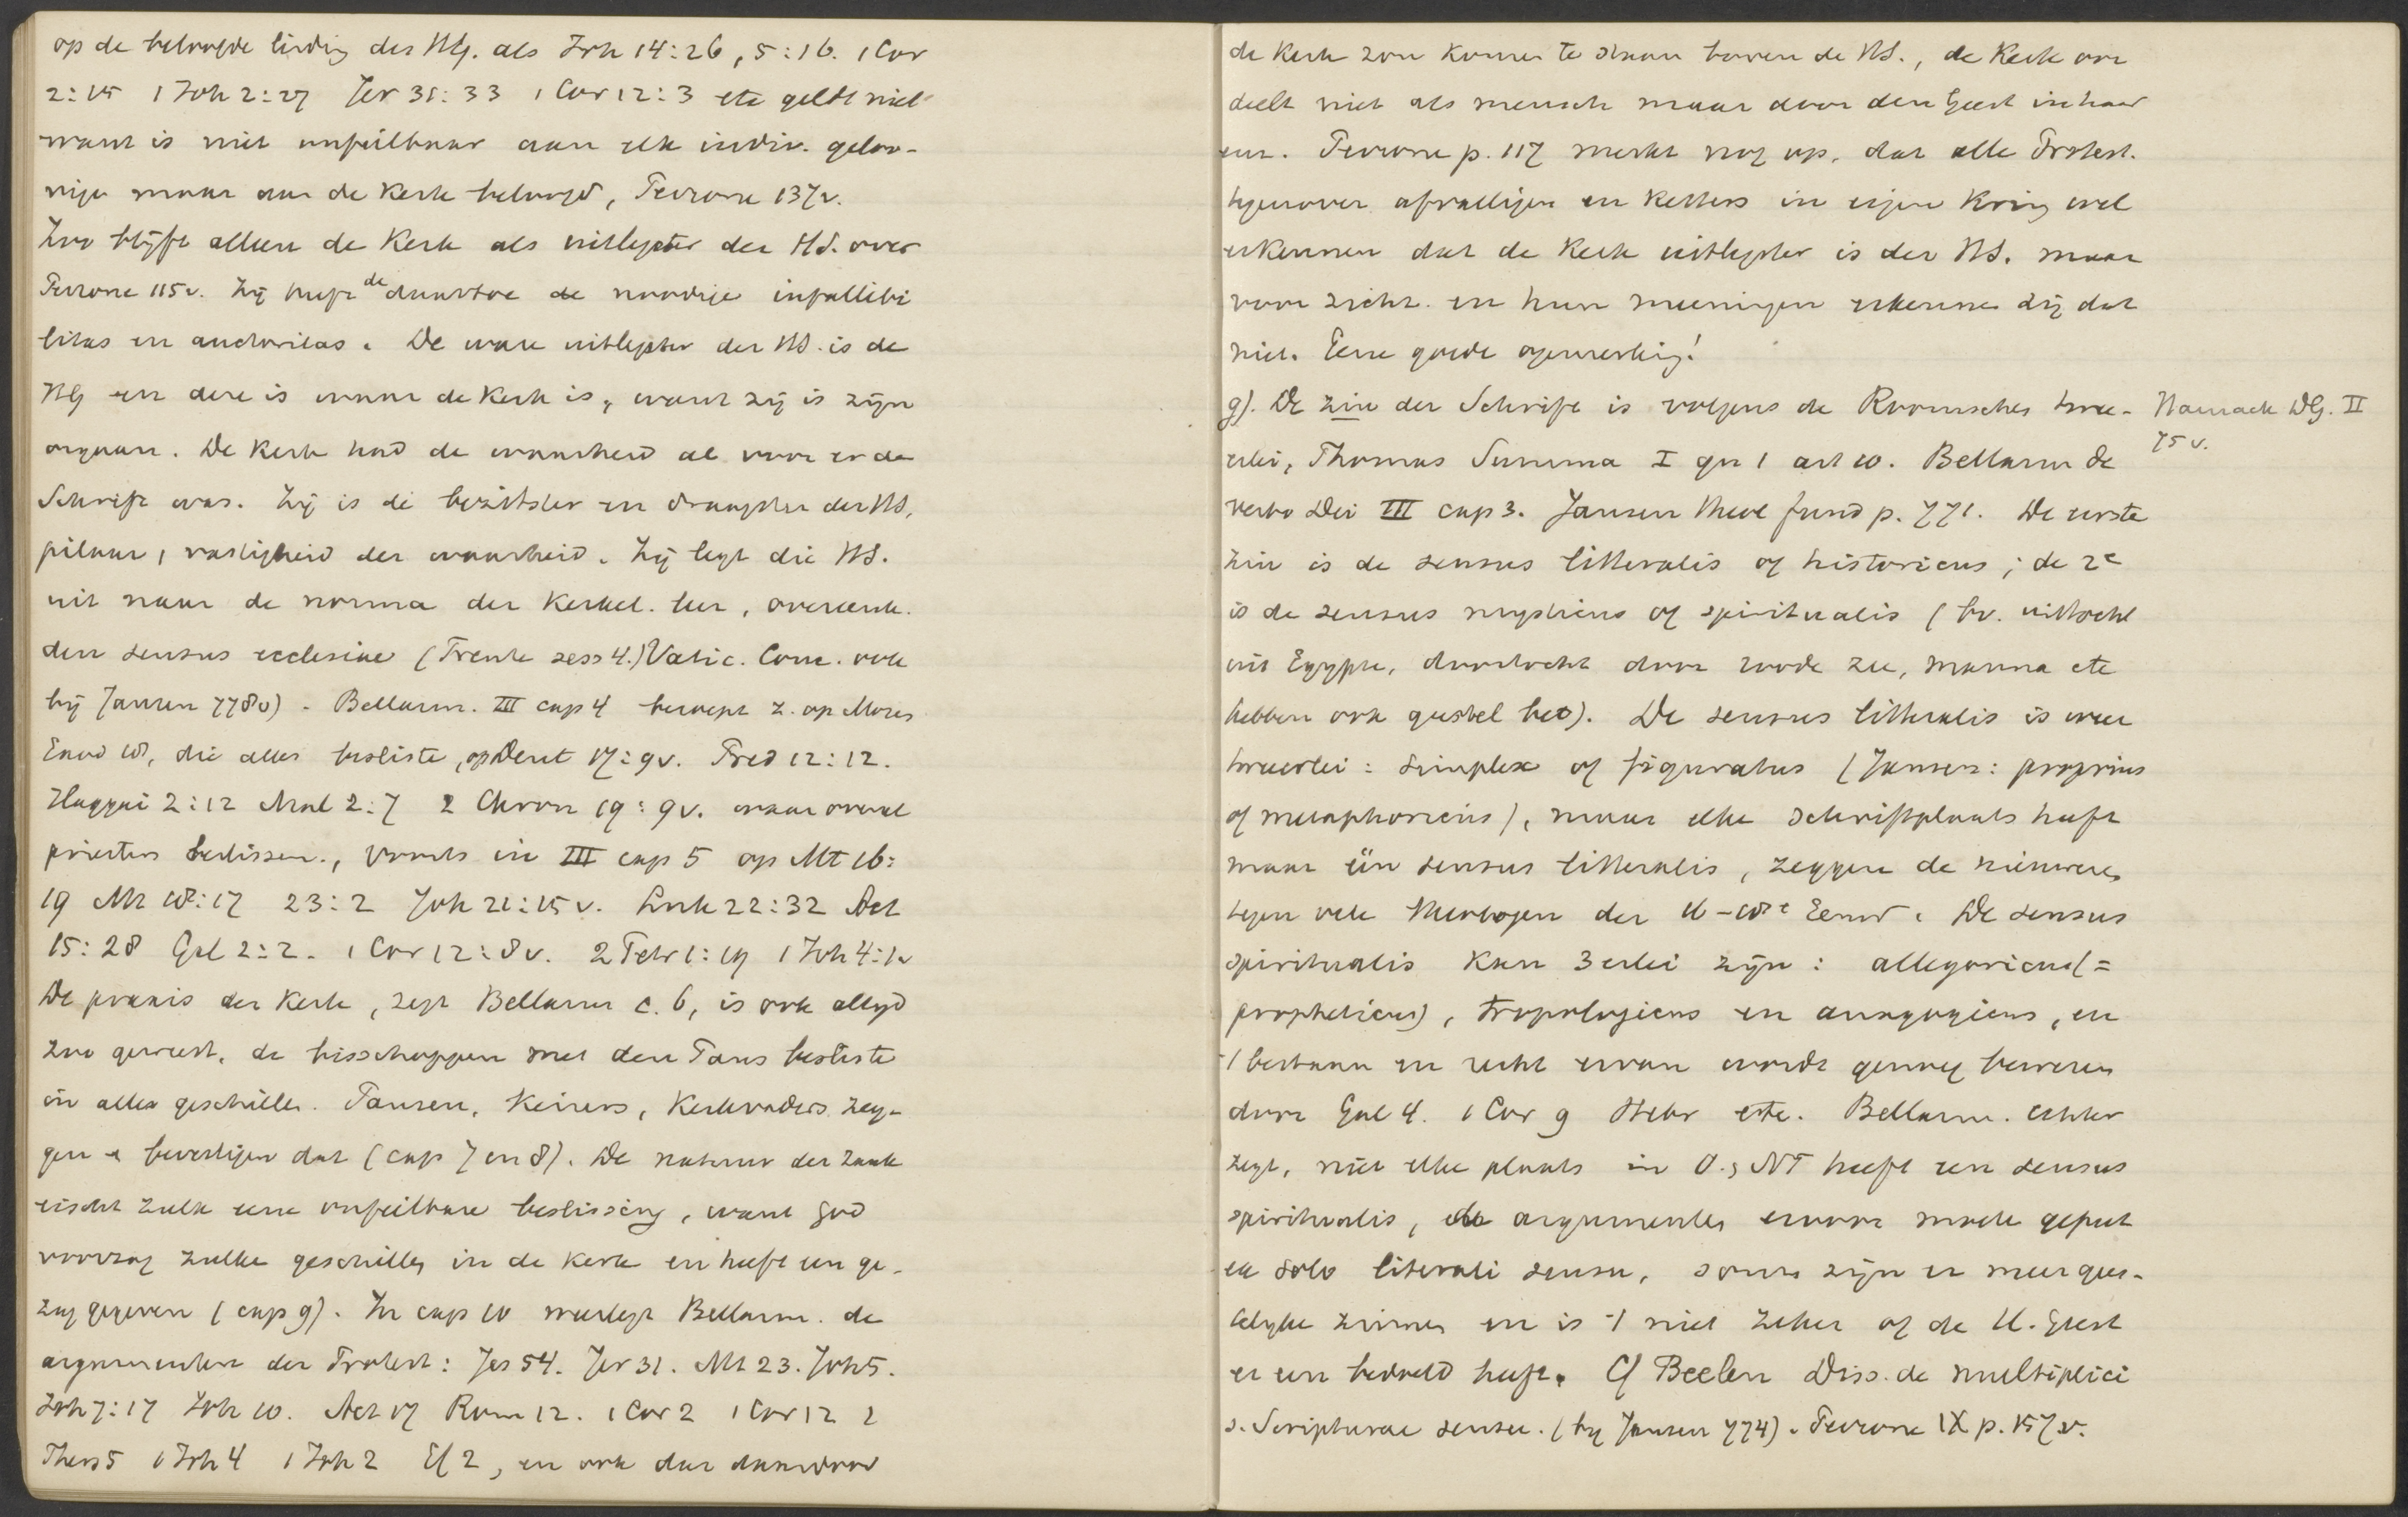 op de beloofde leiding des HG. als Joh 14:26, 5:16. 1 Cor
2:15 1 Joh 2:27 Jer 31:33 1 Cor 12:3 etc geldt niet
want is niet onfeilbaar aan elk indiv. geloo-
vige maar aan de Kerk beloofd, Perrone 137v.
Zoo blijft alleen de Kerk als uitlegster der HS. over
Perrone 115v. Zij heeft de daartoe de noodige infallibi
litas en auctoritas. De ware uitlegster der HS. is de
HG en deze is waar de Kerk is, want zij is zijn
orgaan. De Kerk had de waarheid al voor er de
Schrift was. Zij is de bezitster en draagster der HS,
pilaar, vastigheid der waarheid. Zij legt die HS.
uit naar de norma der Kerkel. leer, overeenk.
den sensus ecclesiae (Trente sess 4.) Vatic. Conc. ook
bij Jansen 778v) - Bellarm. III cap 4 beroept z. op Mozes
Exod 18, die alles besliste, op Deut 17:9v. Pred 12:12.
Haggai 2:12 Mal 2:7 2 Chron 19:9v. waar overal
priesters beslissen., voorts in III cap 5 op Mt 16:
19 Mt 18:17 23:2 Joh 21:15v. Luk 22:32 Act
15:28 Gal 2:2. 1 Cor 12:8v. 2 Petr 1:19 1 Joh 4:1v
De praxis der Kerk, zegt Bellarm c. 6, is ook altijd
zoo geweest, de bisschoppen met den Paus besliste
in alle geschillen. Pausen, Keizers, Kerkvaders zeg-
gen & bevestigen dat (cap 7 en 8). De natuur der zaak
eischt zulk eene onfeilbare beslissing, want God
voorzag zulke geschillen in de Kerk en heeft een ge-
zag gegeven (cap 9). In cap 10 weerlegt Bellarm. de
argumenten der Protest: Jes 54. Jer 31. Mt 23. Joh 5.
Joh 7:17 Joh 10. Act 17 Rom 12. 1 Cor 2 1 Cor 12 1
Thess 5 1 Joh 4 1 Joh 2 Ef 2, en ook dat daardoor
de Kerk zou komen te staan boven de HS., de Kerk oor
deelt niet als mensch maar door den Geest in haar
een. Perrone p. 117 merkt nog op, dat alle Protest.
tegenover afvalligen en Ketters in eigen Kring wel
erkennen dat de Kerk uitlegster is der HS. maar
voor zichz. en hun meeningen erkennen zij dat
niet. Eene goede opmerking!
g). De zin der Schrift is volgens de Roomschen twee-
erlei, Thomas Summa I qu 1 art 10. Bellarm de
verbo Dei III cap 3. Jansen Theol fund p. 771. De eerste
zin is de sensus litteralis of historicus; de 2e
is de sensus mysticus of spiritualis (bv. uittocht
uit Egypte, doortocht door roode zee, manna etc
hebben ook geestel bet). De sensus litteralis is weer
tweeerlei: simplex of figuratus (Jansen: proprius
of metaphoricus), maar elke schriftplaats heeft
maar één sensus litteralis, zeggen de nieuweren
tegen vele theologen der 16-18e Eeuw. De sensus
spiritualis kan 3erlei zijn: allegoricus (=
propheticus), tropologicus en anagogicus, en
't bestaan en recht ervan wordt genoeg bewezen
door Gal 4. 1 Cor 9 Hebr etc. Bellarm. echter
zegt, niet elke plaats in O. & NT heeft een sensus
spiritualis, de argumenten ervoor moete geput
ex solo literali sensu, soms zijn er meer gees-
telijke zinnen en is 't niet zeker of de H. Geest
er een bedoeld heeft. Cf Beelen Diss. de multiplici
s. Scripturae sensu. (bij Jansen 774). Perrone IX p. 157v.
Harnack DG. II
75 v.